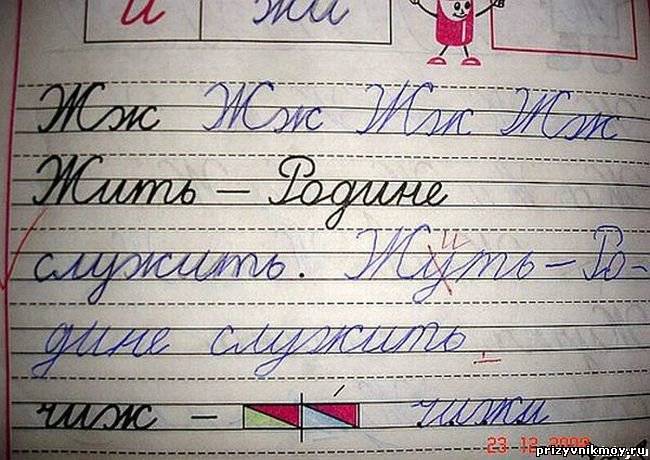 и жи
Жж Жж Жж Жж
Жить – Родине
служить. Жуть – Ро-
и
дине служить
чиж – чижи
23 12 2008
prizyvnikmoy.ru